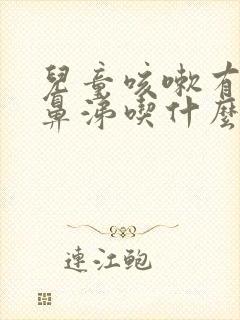 兒童咳嗽有
鼻涕喫什麼
連江鮑